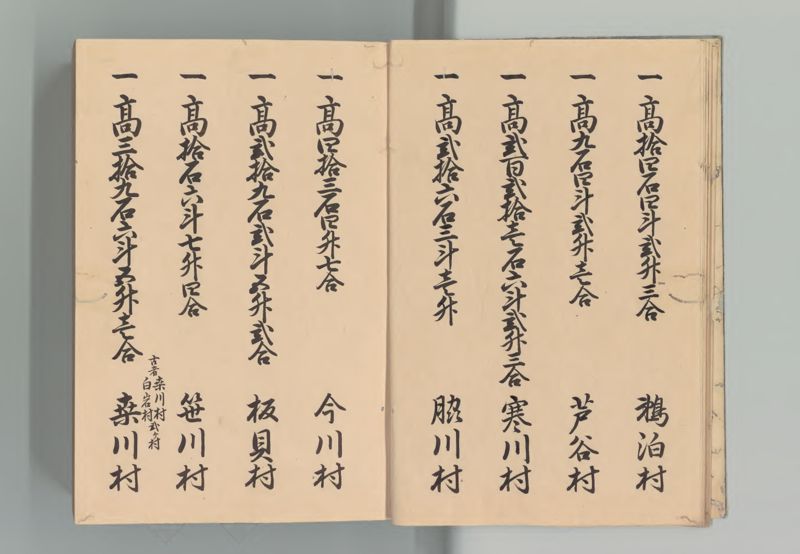 一高拾四石四斗弐升三合 鵜泊村
一高九石四斗弐升壱合 芦谷村
一高弐百弐拾壱石六斗弐升三合 寒川村
一高弐拾六石三斗壱升 脇川村
一高四拾三石四升七合 今川村
一高弐拾九石弐斗五升弐合 板貝村
一高拾石六斗七升四合 笹川村
一高三拾九石六斗五升壱合 桒川村
古者桒川村
白岩村弐ヶ村